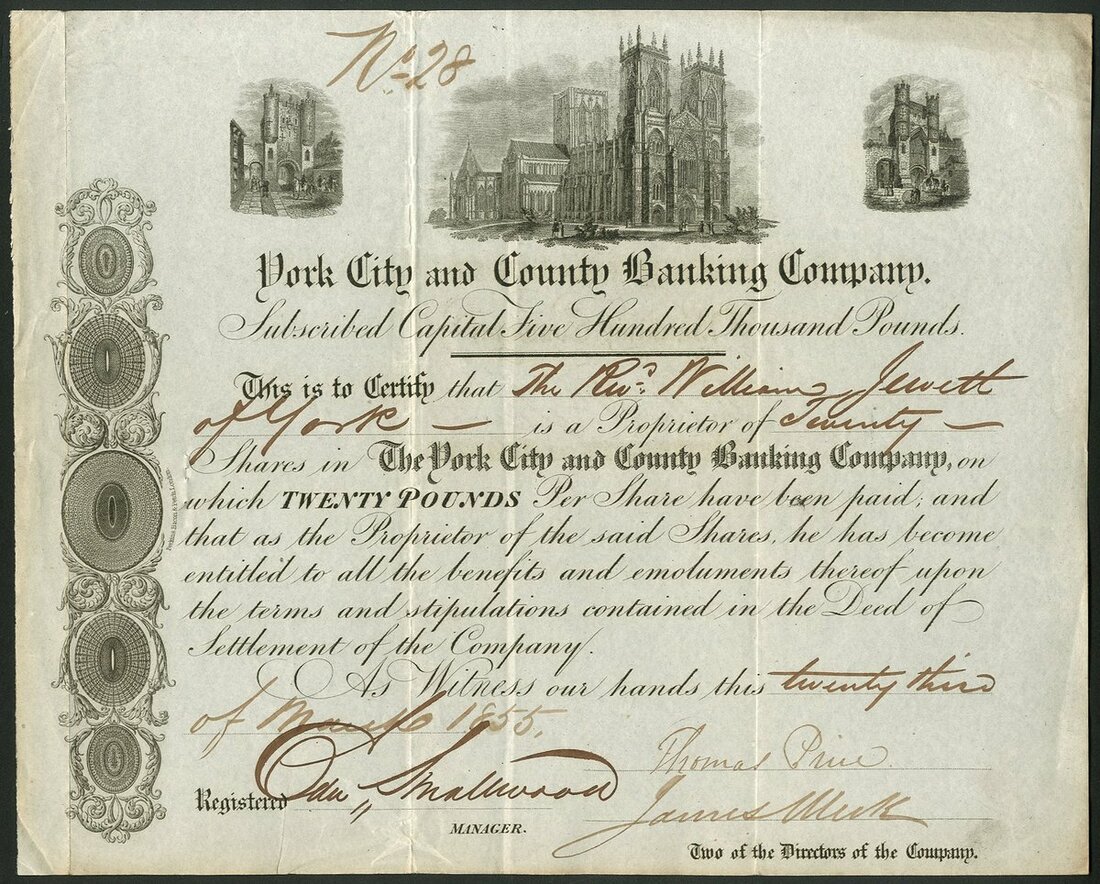 No. 28
York City and County Banking Company.
Subscribed Capital Five Hundred Thousand Pounds.
This is to Certify that The Revd. William Jewett
of York — is a Proprietor of Twenty —
Shares in The York City and County Banking Company, on
which TWENTY POUNDS Per Share have been paid; and
that as the Proprietor of the said Shares, he has become
entitled to all the benefits and emoluments thereof upon
the terms and stipulations contained in the Deed of
Settlement of the Company.
As Witness our hands this twenty third
of March 1855.
Thomas
Registered Smallwood
James Meek
MANAGER.
Two of the Directors of the Company.
Perkins, Bacon & Petch, London